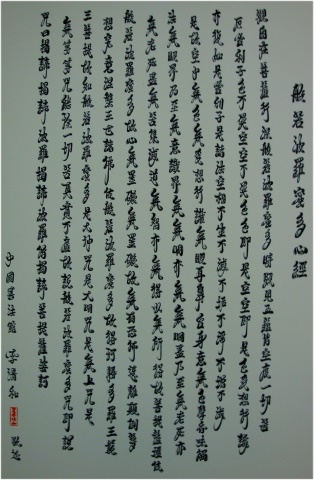 般若波羅蜜多心經
觀自在菩薩行深般若波羅蜜多時照見五蘊皆空度一切苦
厄舍利子色不異空空不異色色即是空空即是色受想行識
亦復如是舍利子是諸法空相不生不滅不垢不淨不增不減
是故空中無色無受想行識無眼耳鼻舌身意無色聲香味觸
法無眼界乃至無意識界無無明亦無無明盡乃至無老死亦
無老死盡無苦集滅道無智亦無得以無所得故菩提薩埵依
般若波羅蜜多故心無罣礙無罣礙故無有恐怖遠離顛倒夢
想究竟涅槃三世諸佛依般若波羅蜜多故得阿耨多羅三藐
三菩提故知般若波羅蜜多是大神咒是大明咒是無上咒是
無等等咒能除一切苦真實不虛故說般若波羅蜜多咒即說
咒曰揭諦揭諦波羅揭諦波羅僧揭諦菩提薩婆訶
中國書法 李清和